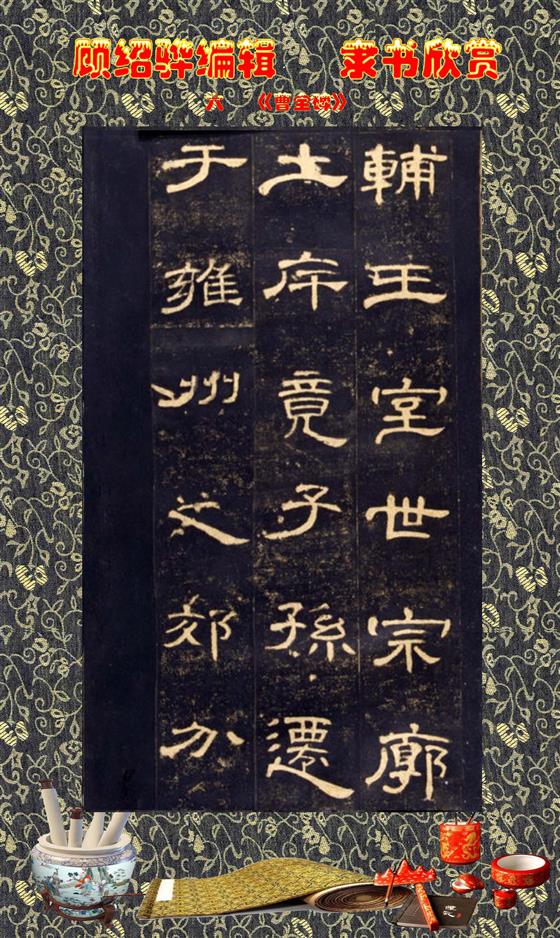 顾绍骅编辑 隶书欣赏
六 《曹全碑》
輔王室世宗廓
土斥竟子孫遷
于雍州之郊分